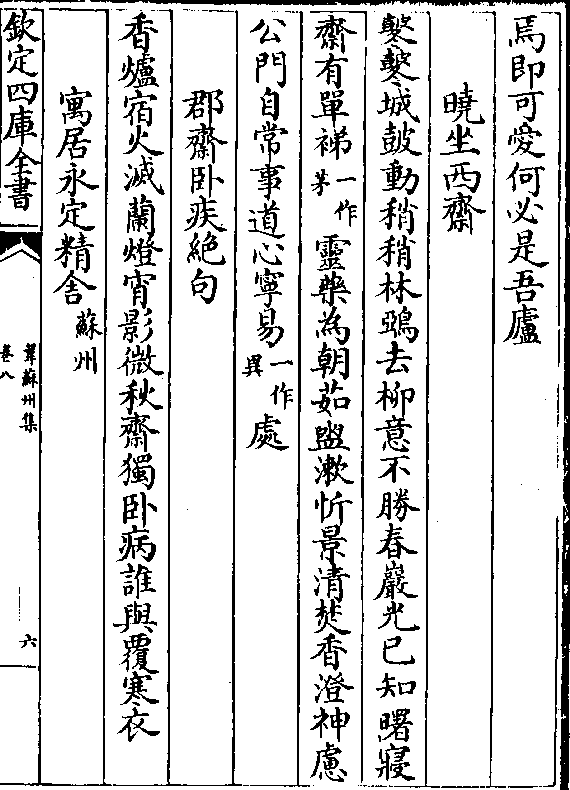 焉即可愛何必是吾廬
曉坐西齋
鼕鼕城鼓動稍稍林鵶去柳意不勝春巖光已知曙寢
齋有單綈一作茅靈藥為朝茹盥漱忻景清焚香澄神慮
公門自常事道心寧易一作異處
郡齋卧疾絶句
香爐宿火滅蘭燈宵影微秋齋獨卧病誰與覆寒衣
寓居永定精舍蘇州
欽定四庫全書
韋蘇州集
卷八
六